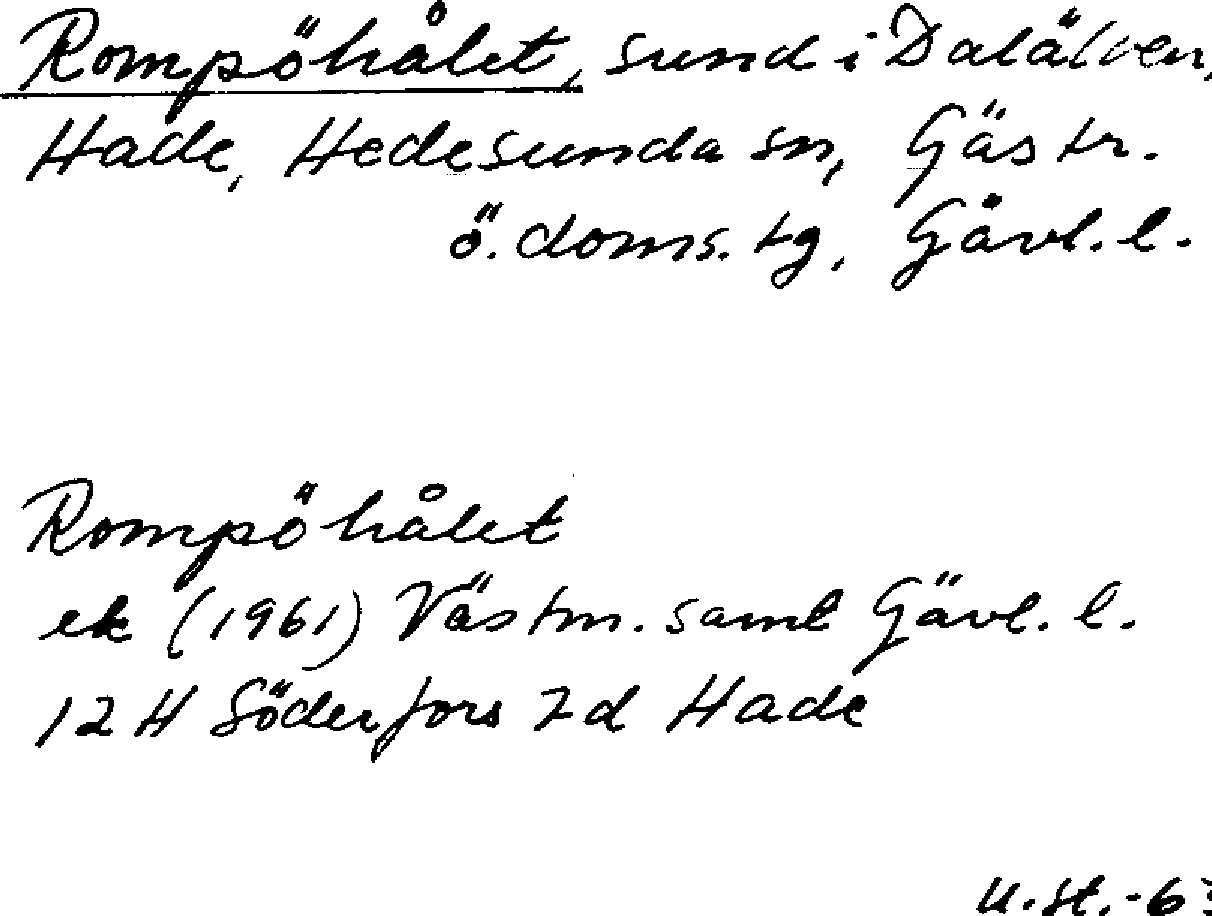 Rompöhålet, sund i Dalälven,
Hade, Hedesunda sn, Gästr.
ö. doms. tg, Gävl. l.
Rompöhålet
ek (1961) Västm. saml Gävl. l.
12 H Söderfors 7d Hade
U. St. -63